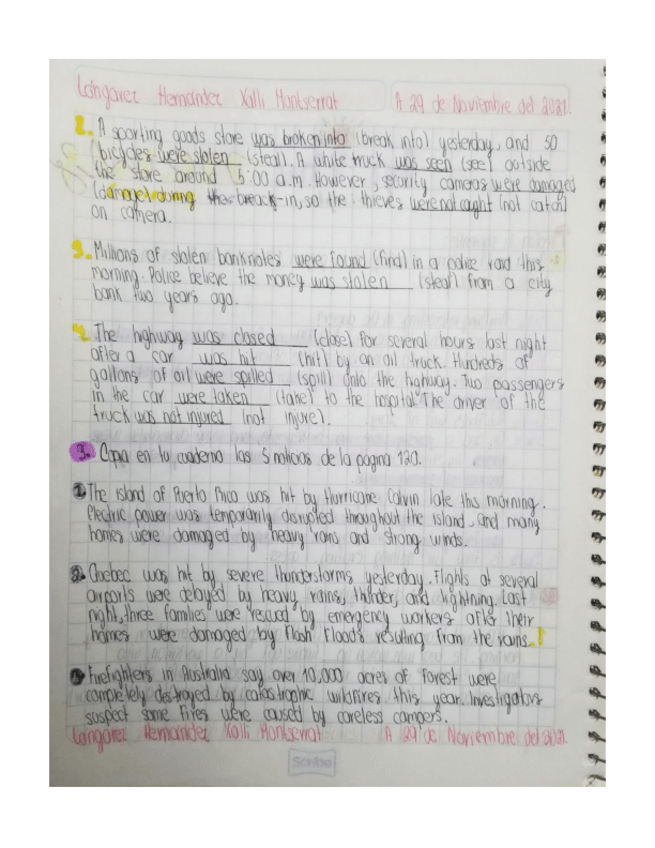 Longarez Hernandez Xalli Montserrat A 29 de Noviembre del 2021.
2. A sporting goods store was broken into (break into) yesterday, and 50
bicycles were stolen (steal). A white truck was seen (see) outside
the store around 5:00 a.m. However, security cameras were damaged
(damage) during the break-in, so the thieves were not caught (not catch)
on camera.
3. Millions of stolen banknotes were found (find) in a police raid this
morning. Police believe the money was stolen (steal) from a city
bank two years ago.
4. The highway was closed (close) for several hours last night
after a car was hit (hit) by an oil truck. Hudreds of
gallons of oil were spilled (spill) onto the highway. Two passengers
in the car were taken (take) to the hospital. The driver of the
truck was not injured (not injure).
3. Copia en tu cuaderno las 5 noticias de la pagina 120.
1 The island of Puerto Rico was hit by Hurricane Calvin late this morning.
Electric power was temporarily disrupted throughout the island, and many
homes were damaged by heavy rains and strong winds.
2. Quebec was hit by severe thunderstorms yesterday. Flights at several
airports were delayed by heavy rains, thunder, and lightning. Last
night, three families were rescued by emergency workers after their
homes were damaged by flash floods resulting from the rains.!
Firefighters in Australia say over 10,000 acres of forest were
completely destroyed by catastrophic wildfires this year. Investigators
suspect some fires were caused by careless campers.
Longarez Hernandez Xalli Montserrat A 29 de Noviembre del 2021.
Scribe